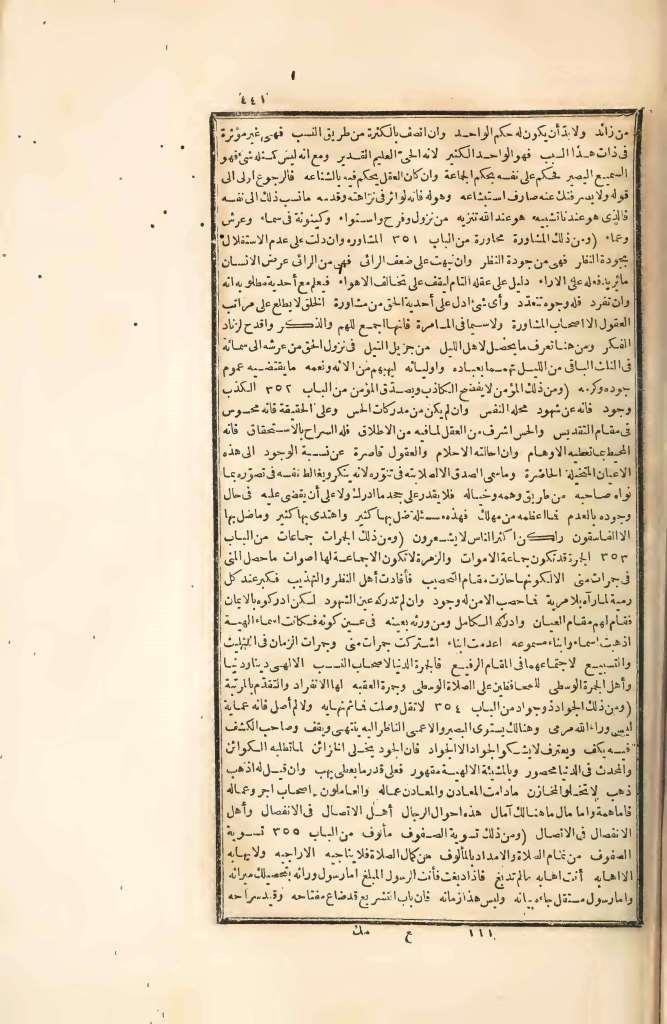 ٤٤١
من زائد ولابد أن يكون له حكم الواحد وان اتصف بالكثرة من طريق النسب فهى غير مؤثرة
فى ذات هذا السبب فهو الواحد الكثير لانه الحىّ العليم القدير ومع انه ليس كمثله شئ فهو
السميع البصير فحكم على نفسه بحكم الجماعة وان كان العقل يحكم فيه بالشناعه فالرجوع اولى الى
قوله ولا يصرفنك عنه صارف استبشاعه وهوله فانه لوائر فى نزاهته وقدسه مانسب ذلك الى نفسه
فالذى هو عندنا تشبيه هو عند الله تنزيه من نزول وفرح واستواء وكينونة فى سماء وعرش
وعماء (ومن ذلك المشاورة محاورة من الباب ٣٥١ المشاوره وان دلت على عدم الاستقلال
بجودة النظر فهى من جودة النظر وان نبهت على ضعف الرائى فهى من الرائى عرض الانسان
مايريد فعله على الآراء دليل على عقله التام ليقف على تخالف الاهواء فيعلم مع أحدية مطلوبه انه
وان تفرد فله وجوه تتعدّد وأى شئ ادل على أحدية الحق من مشاورة الخلق لا يطلع على مراتب
العقول الا اصحاب المشاورة ولاسيما فى المسامرة فانها اجمع للهم والذكر واقدح لزناد
الفكر ومن هنا تعرف ما يحصل لاهل الليل من جزيل النيل فى نزول الحق من عرشه الى سمائه
فى الثلث الباقى من الليل تهمما بعباده واوليائه ليهبهم من آلائه ونعمه ما يقتضيه عموم
جوده وكرمه (ومن ذلك المؤمن لا يفضح الكاذب ويصدّق المؤمن من الباب ٣٥٢ الكذب
وجود فانه عن شهود محله النفس وان لم يكن من مدركات الحس وعلى الحقيقة فانه محسوس
فى مقام التقديس والحس اشرف من العقل لما فيه من الاطلاق فله السراح بالاستحقاق فانه
المحيط بما تعطيه الاوهام وان احالته الاحلام والعقول قاصرة عن نسبة الوجود الى هذه
الاعيان المتخيلة الحاضرة وما سمى الصدق الا لصلابته فى تنوّره لانه ينكر ويغالط نفسه فى تصوّره بما
نواه صاحبه من طريق وهمه وخياله فلا يقدر على جحد ما ادرك ولا على أن يقضى عليه فى حال
وجوده بالعدم فما اعظمه من مهلك فهذه مسئلة ضل بها كثير واهتدى بها كثير وما ضل بها
الا الفاسقون ولكن اكثر الناس لا يشعرون (ومن ذلك الجمرات جماعات من الباب
٣٥٣ الجمرة قد تكون جماعة الاموات والزهرة لا تكون الا جماعة لها اصوات ما حصل المنى
فى جمرات منى الا لكونها حازت مقام التحصيب فأفادت أهل النظر والتهذيب فكبر عند كل
رمية لما رآه بلا مرية فما حصب الا من له وجود وان لم تدركه عين الشهود لكن ادركوه بالايمان
فقام لهم مقام العيان وادركه الكامل ومن ورثه بعينه فى عين كونه فكانت اسماء الهية
اذهبت اسماء وابناء مسموعه اعدمت ابناء اشتركت جمرات منى وجمرات الزمان فى التثليث
والتسبيع لاجتماعهما فى المقام الرفيع فالجمرة الدنيا لاصحاب النسب الالهى دينا ودنيا
وأهل الجمرة الوسطى للمحافظين على الصلاة الوسطى وجمرة العقبه لها الانفراد والتقدّم بالمرتبة
(ومن ذلك الجواد ذو جواد من الباب ٣٥٤ لا تقل وصلت فما ثم نهايه ولا لم أصل فانه عمايه
ليس وراء الله مرمى وهنالك يستوى البصير والاعمى الناظر اليه ينتهى ويقف وصاحب الكشف
فيه يكف ويعترف لا يشكو الجواد الا الجواد فان الجود يخلى الخزائن لما تطلبه الكوائن
والمحدث فى الدنيا محصور وبالمشيئة الالهية مقهور فعلى قدر ما يعطى يهب وان قيل له اذهب
ذهب لا تخلو المخازن مادامت المعادن والمعادن عماله والعاملون اصحاب اجر وعماله
فاما همة واما مال ما هنالك آمال هذه احوال الرجال أهل الاتصال فى الانفصال وأهل
الانفصال فى الاتصال (ومن ذلك تسوية الصفوف مألوف من الباب ٣٥٥ تسوية
الصفوف من تمام الصلاة والامداد بالمألوف من كمال الصلاة فلا يناجيه الا راجيه ولا يهابه
الا اهابه أنت اهابه ما لم تدبغ فاذا دبغت فأنت الرسول المبلغ اما رسول وراثه بتحصيلك ميراثه
واما رسول مستقل جاء ببيانه وليس هذا زمانه فان باب التشريع قد ضاع مفتاحه وقيد سراحه
١١١ ع مك